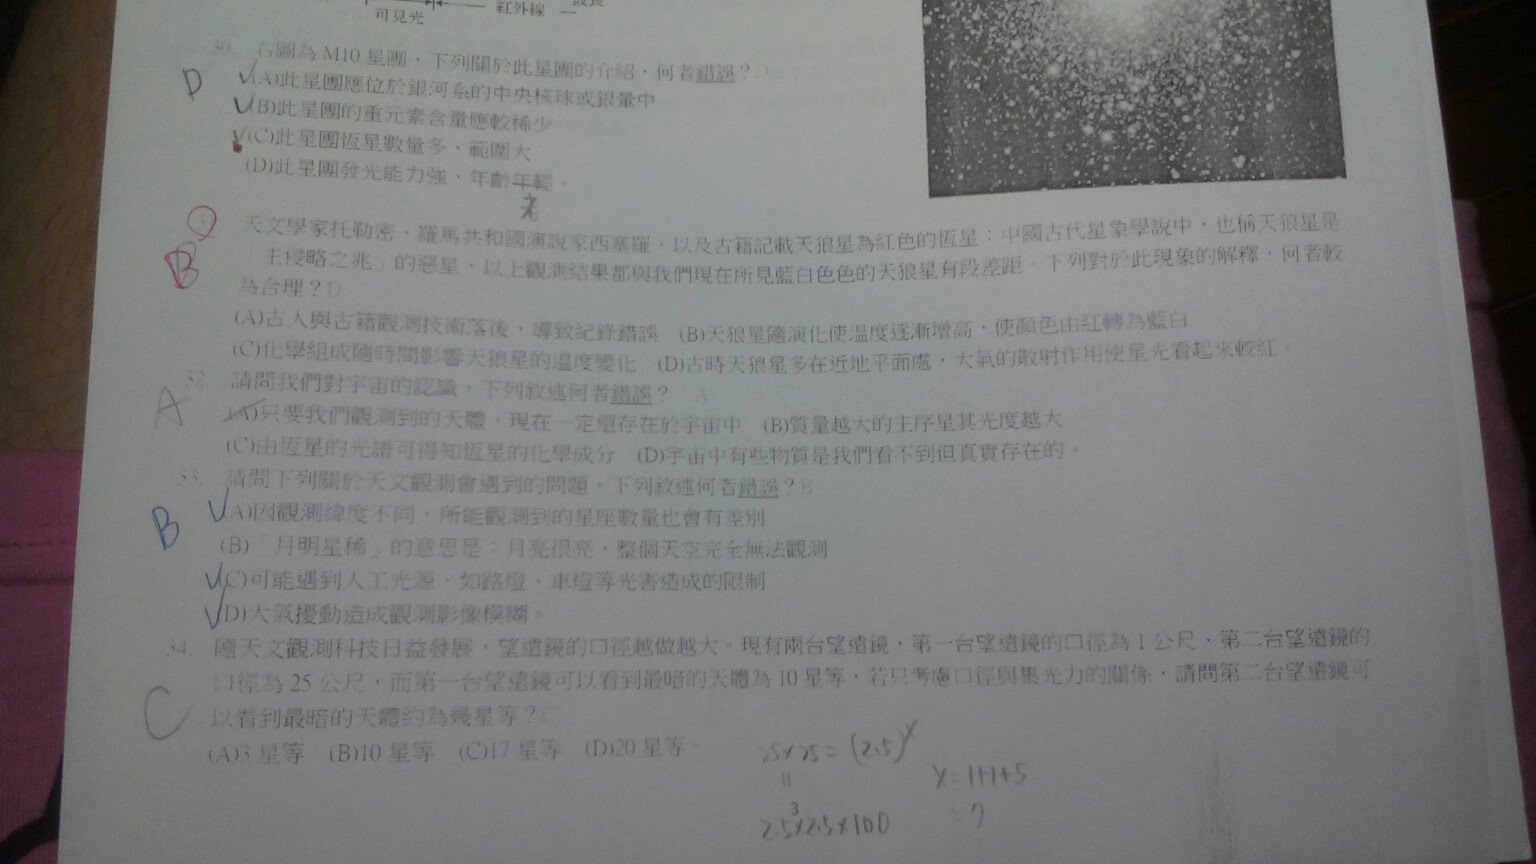 可見光
紅外線
波長
30. 右圖為 M10 星團，下列關於此星團的介紹，何者錯誤？D
D
(A)此星團應位於銀河系的中央核球或銀暈中
(B)此星團的重元素含量應較稀少
(C)此星團恆星數量多、範圍大
(D)此星團發光能力強，年齡年輕。
老
天文學家托勒密、羅馬共和國演說家西塞羅、以及古籍記載天狼星為紅色的恆星；中國古代星象學說中，也稱天狼星是
B
主侵略之兆」的惡星，以上觀測結果都與我們現在所見藍白色色的天狼星有段差距。下列對於此現象的解釋，何者較
為合理？D
(A)古人與古籍觀測技術落後，導致紀錄錯誤 (B)天狼星隨演化使溫度逐漸增高，使顏色由紅轉為藍白
(C)化學組成隨時間影響天狼星的溫度變化 (D)古時天狼星多在近地平面處，大氣的散射作用使星光看起來較紅。
32. 請問我們對宇宙的認識，下列敘述何者錯誤？ A
A
(A)只要我們觀測到的天體，現在一定還存在於宇宙中 (B)質量越大的主序星其光度越大
(C)由恆星的光譜可得知恆星的化學成分 (D)宇宙中有些物質是我們看不到但真實存在的。
33. 請問下列關於天文觀測會遇到的問題，下列敘述何者錯誤？B
B
(A)因觀測緯度不同，所能觀測到的星座數量也會有差別
(B)「月明星稀」的意思是：月亮很亮，整個天空完全無法觀測
(C)可能遇到人工光源，如路燈、車燈等光害造成的限制
(D)大氣擾動造成觀測影像模糊。
34. 隨天文觀測科技日益發展，望遠鏡的口徑越做越大。現有兩台望遠鏡，第一台望遠鏡的口徑為 1 公尺、第二台望遠鏡的
口徑為 25 公尺，而第一台望遠鏡可以看到最暗的天體為 10 星等，若只考慮口徑與集光力的關係，請問第二台望遠鏡可
C
以看到最暗的天體約為幾星等？C
(A)3 星等 (B)10 星等 (C)17 星等 (D)20 星等。
25×25=(2.5)^x
x=1+1+5
=7
2.5×2.5×100